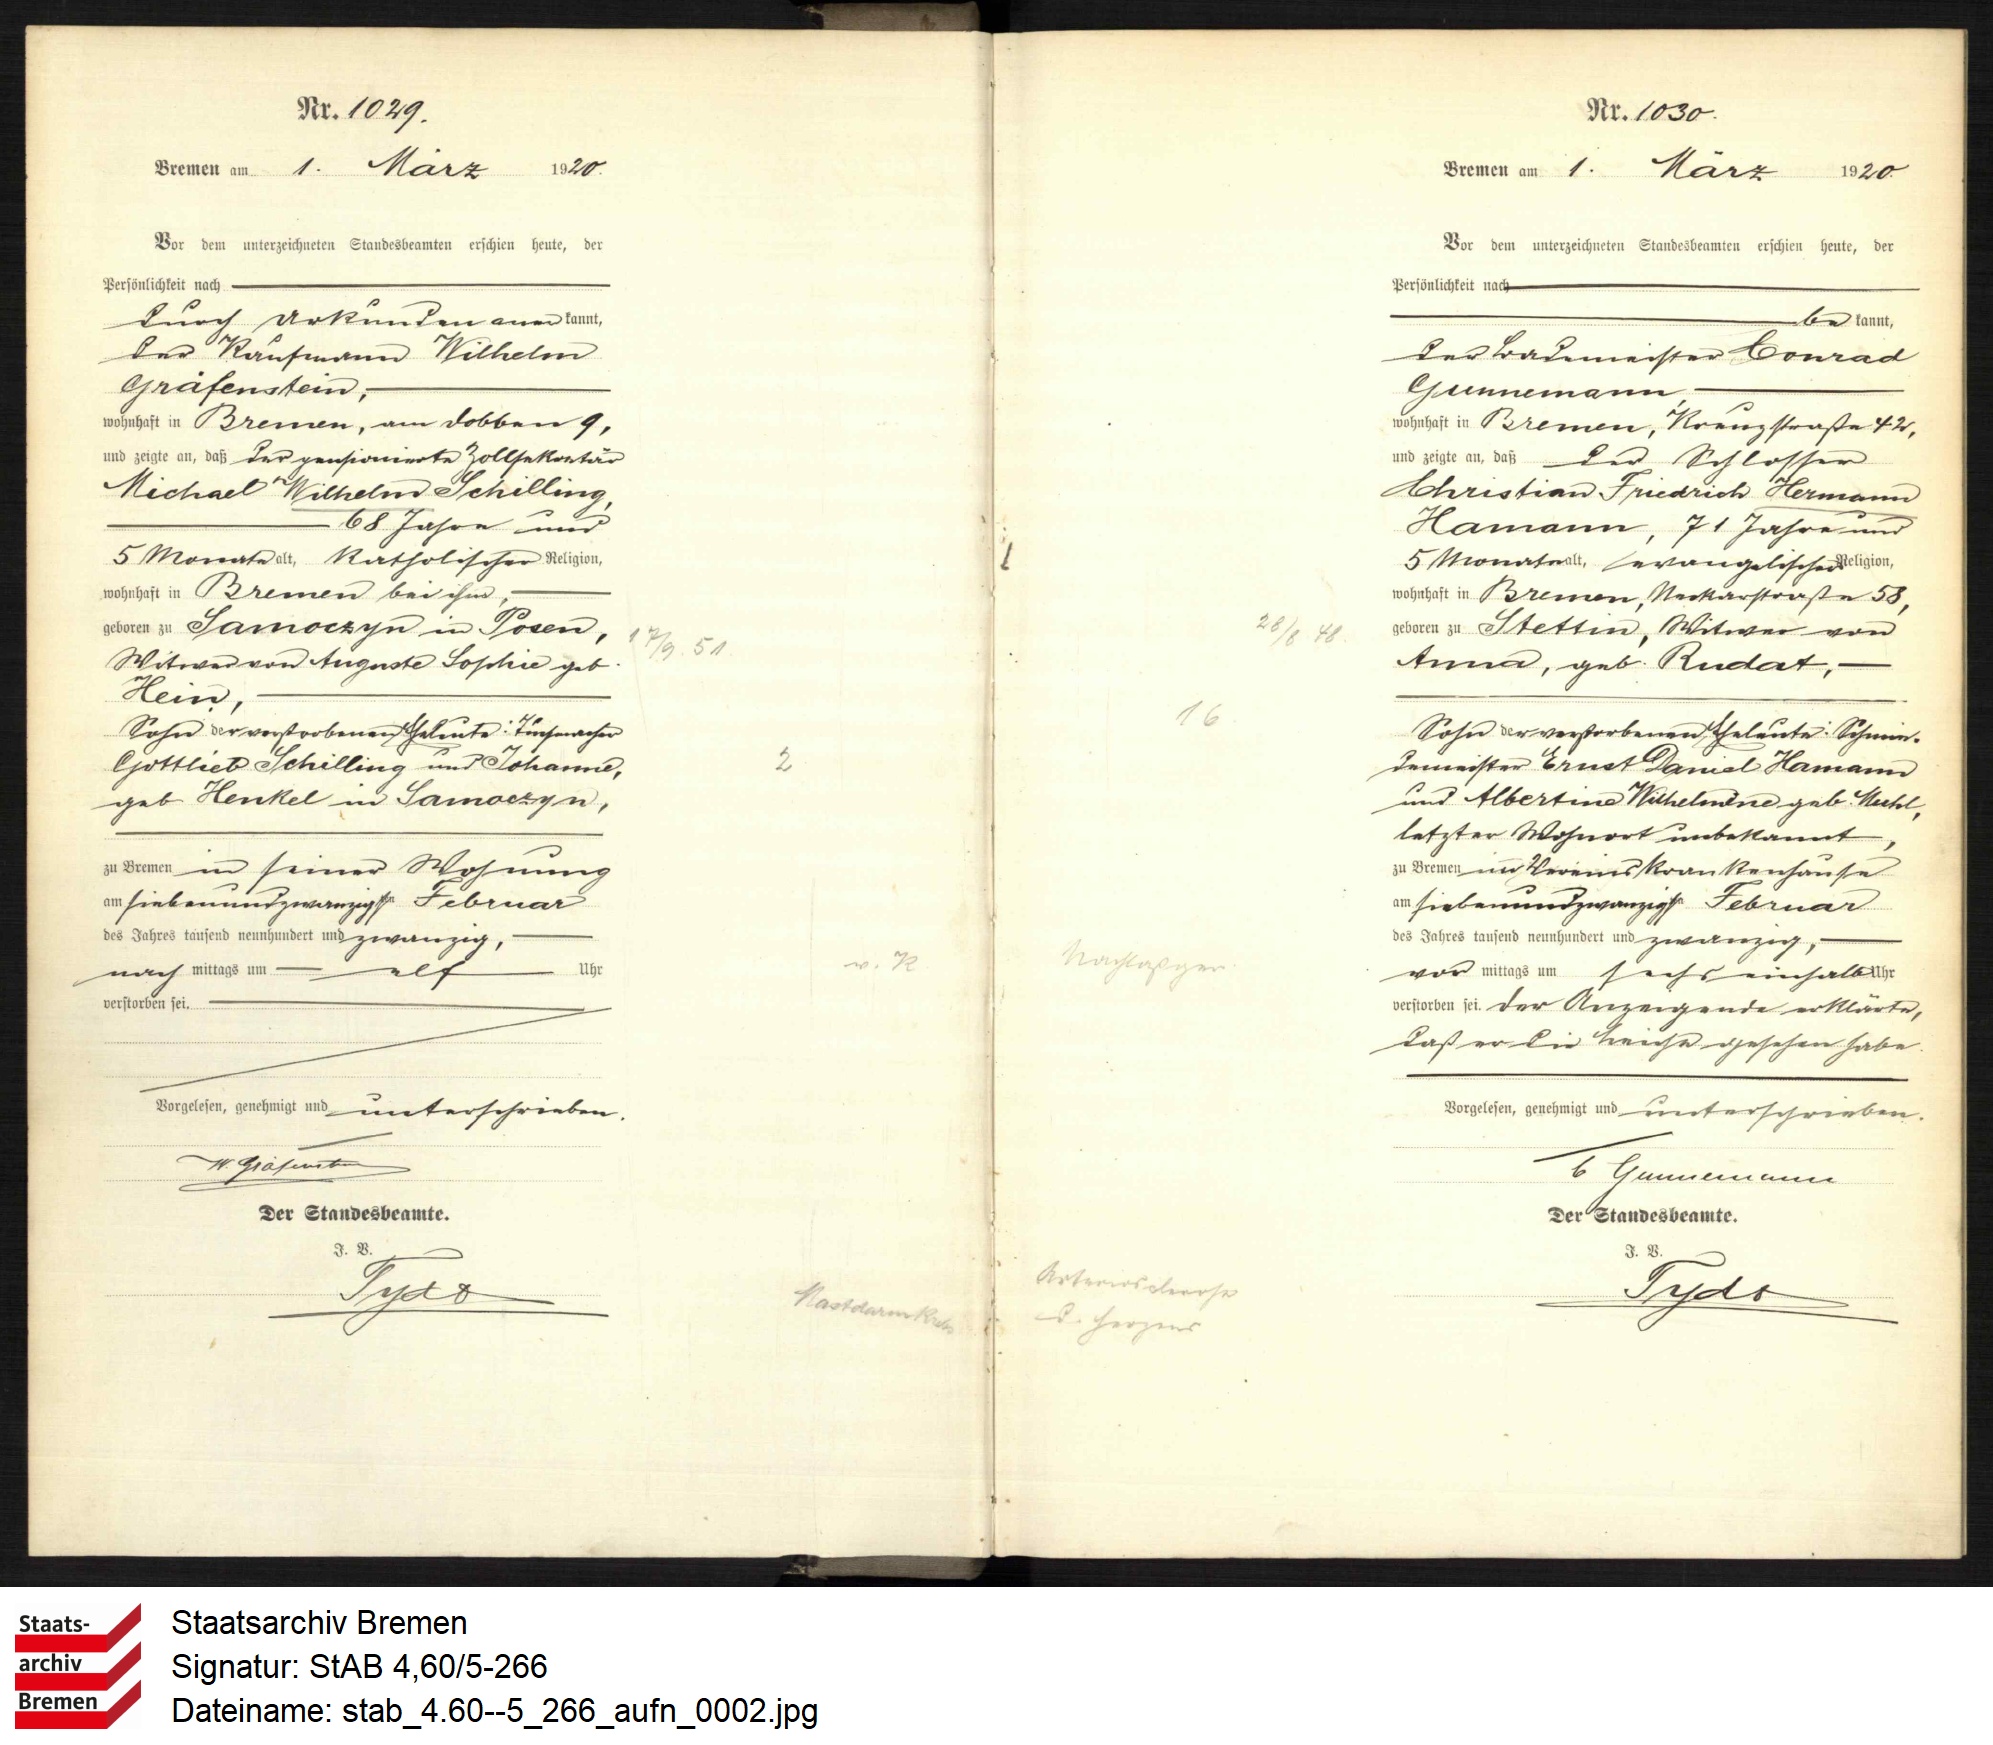 Nr. 1029.
Bremen am 1. März 1920.
Vor dem unterzeichneten Standesbeamten erschien heute, der
Persönlichkeit nach
durch Urkunden aner kannt,
der Kaufmann Wilhelm
Gräfenstein,
wohnhaft in Bremen, am Dobben 9,
und zeigte an, daß der pensionierte Zollsekretär
Michael Wilhelm Schilling,
68 Jahre und
5 Monate alt, katholischer Religion,
wohnhaft in Bremen bei ihm,
geboren zu Samoczyn in Posen,
17/9. 51.
Witwer von Auguste Sophie geb.
Hein,
Sohn der verstorbenen Eheleute: Tuchmacher
Gottlieb Schilling und Johanne,
2
geb. Henkel in Samoczyn,
zu Bremen in seiner Wohnung
am siebenundzwanzigsten Februar
des Jahres tausend neunhundert und zwanzig,
nach mittags um elf Uhr
v. K
verstorben sei.
Vorgelesen, genehmigt und unterschrieben.
W. Gräfenstein
Der Standesbeamte.
J. V.
Tydo
Mastdarmkrebs
Nr. 1030.
Bremen am 1. März 1920.
Vor dem unterzeichneten Standesbeamten erschien heute, der
Persönlichkeit nach
be kannt,
der Lademeister Conrad
Gunnemann,
wohnhaft in Bremen, Kreuzstraße 42,
und zeigte an, daß der Schlosser
Christian Friedrich Hermann
Hamann, 71 Jahre und
5 Monate alt, evangelischer Religion,
wohnhaft in Bremen, Neckarstraße 58,
28/8 48.
geboren zu Stettin, Witwer von
Anna, geb. Rudat,
16
Sohn der verstorbenen Eheleute: Schmie-
demeister Ernst Daniel Hamann
und Albertine Wilhelmine geb.
letzter Wohnort unbekannt,
zu Bremen im Vereinskrankenhause
am siebenundzwanzigsten Februar
des Jahres tausend neunhundert und zwanzig,
Nachlaßger.
vor mittags um sechs einhalb Uhr
verstorben sei. Der Anzeigende erklärte,
daß er die Leiche gesehen habe.
Vorgelesen, genehmigt und unterschrieben.
C Gunnemann
Der Standesbeamte.
J. V.
Tydo
Arteriosclerose
d. Herzens
Staats-
archiv
Bremen
Staatsarchiv Bremen
Signatur: StAB 4,60/5-266
Dateiname: stab_4.60--5_266_aufn_0002.jpg